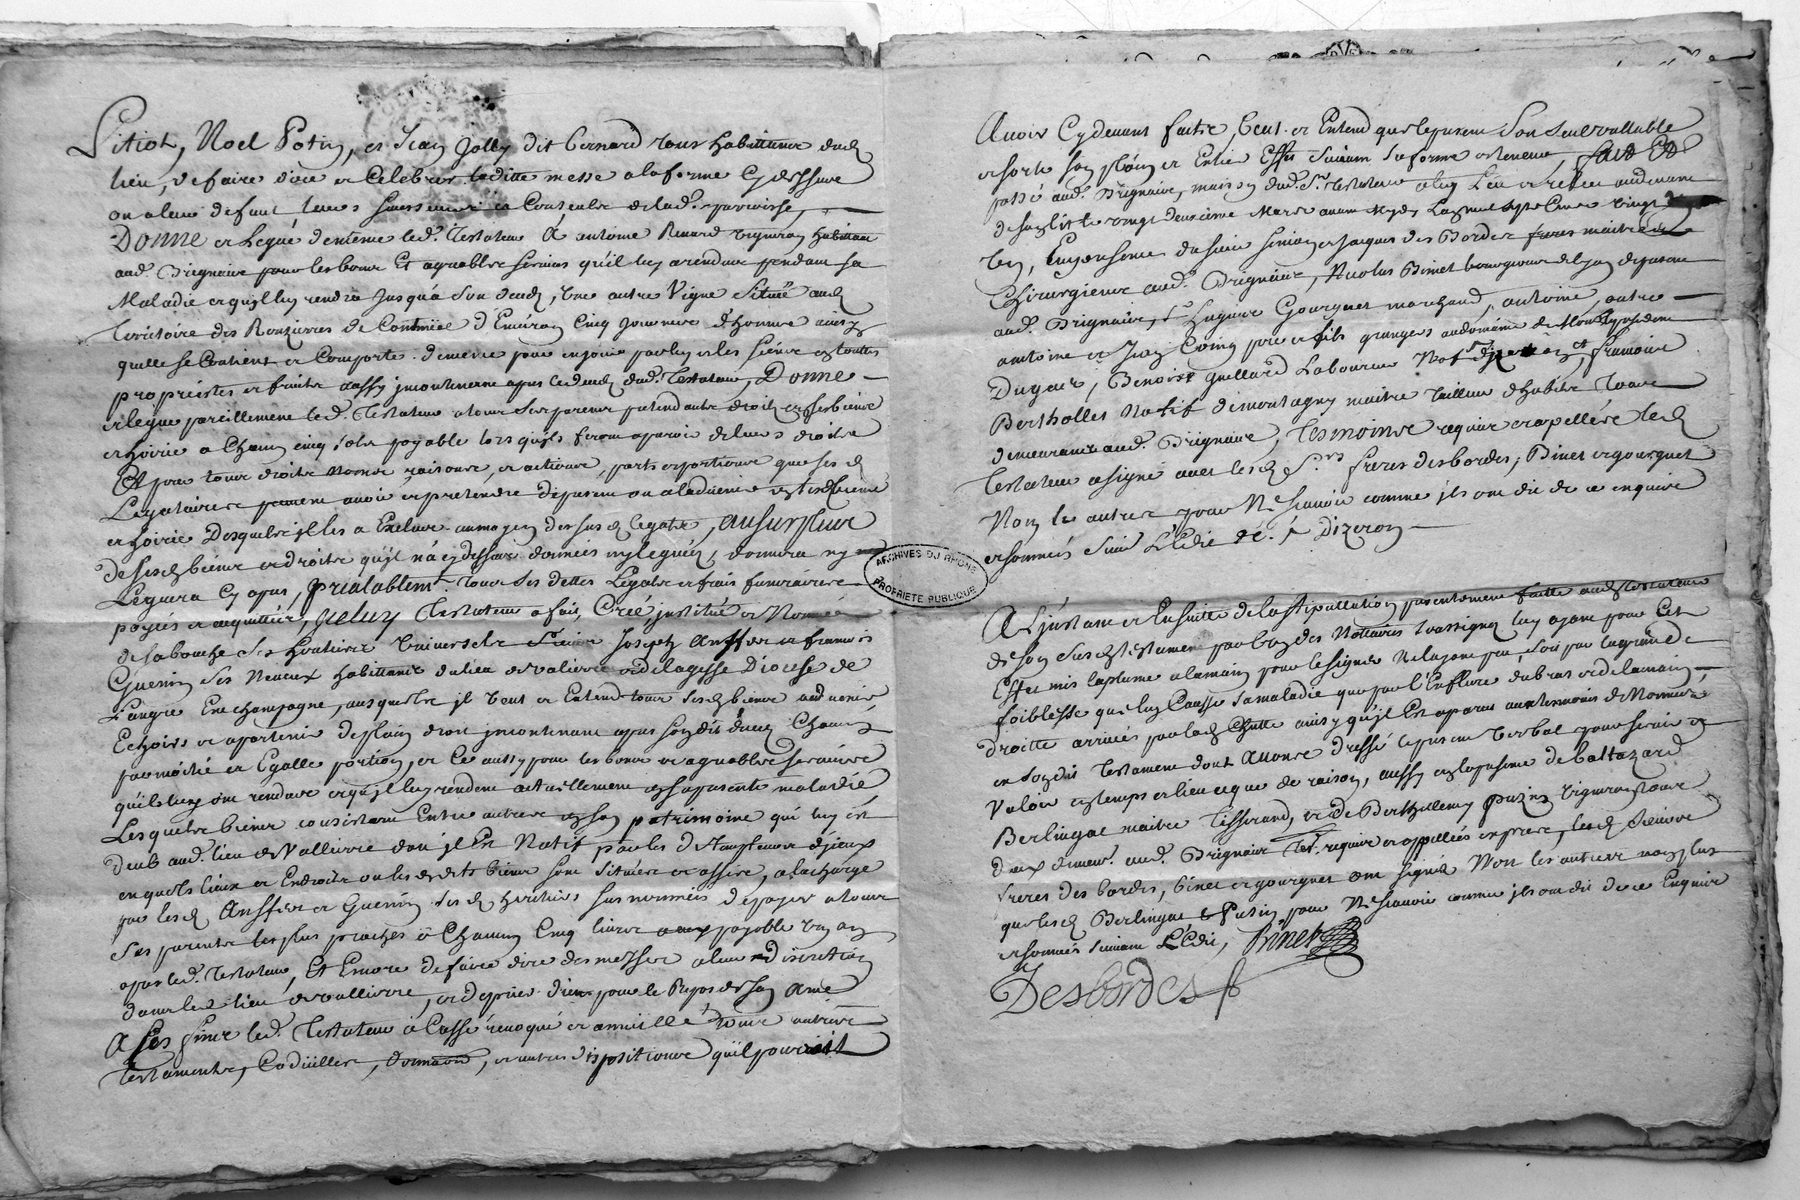 Pitiot, Noel Potin, et Jean Jolly dit bernard tous habittans dud
lieu, de faire dire et Celebrer laditte messe a la forme Cydessus
ou a leur defaut leurs successeurs et Consulz de lad. parroisse,
DONNE et Legue de mesme led. Testateur A antoine Renard vigneron habittant
aud. Brignais pour les bons Et agreables services qu'il luy a rendus pendant sa
Maladie et qu'il luy rendra Jusqu'a son deced, Une autre Vigne Situeé aud
Territoire des Ronzieres de Contenüe d'Environ Cinq Journeés d'hommes ainsy
quelle se Contient et Comporte de mesme pour en jouir par luy et les siens en toutte
proprietés et fruits aussy incontinent apres le deced dud. Testateur, Donne
et legue pareillement led. Testateur a tous ses parens pretendants droits en ses biens
et hoirie a Chacun cinq sols payable lors qu'ils feront aparoir de leurs droits
Et pour tous droits noms, raisons, et actions, parts et portions que ses d
Legataires peuvent avoir et pretendre a present ou a l'advenir en ses biens
et hoirie Desquels il les a Exclus au moyen des susd legats, AuSurplus
de ses biens et droits qu'il n'a cy dessus donnés ny legués, donnera ny
Leguera Cy apres, prealablemt. tous ses dettes Legats et frais funeraires
payés et acquittés, jceluy Testateur a fait, Creé, jnstitué et Nommé
de sa bouche Ses heritiers Universels Sieurs Joseph Ansfder et francois
Guenin Ses Neveux habittants du lieu de valierre de Diocese de
Langre En champagne, ausquels il veut et Entend tous ses biens
Echoir et apartenir de plain droit incontinent apres son dit deced Chacun
par moitié et Egalle portion, et Ce aussy pour les bons et agreables services
qu'ils luy ont rendus et qu'ils luy rendent actuellement en sa presente maladie
Lesquels biens consistant Entre autres en son patrimoine qui luy est
deub aud. lieu de Vallierre dont il Est Natif par les
en quels lieux et Endroits ou lesdits biens sont situés et assis, a la charge
par lesd Ansfder et Guenin sesd heritiers sus nommés de payer a tous
Ses parents les plus proches a Chacun Cinq livres payable un an
apres led. Testateur, Et Encore de faire dire des messes a leur discretion
dans led lieu de vallierre, et de prier dieu pour le Repos de son Ame
A Ces Fins led. Testateur a Cassé revoqué et annullé tous autres
Testaments, Codicilles, donnations, et autres dispositions qu'il pourroit
Avoir Cy devant faits, Veut et Entend que le present Soit Seul vallable
et sorte son plein et Entier Effet Suivant sa forme et teneur, fait Et
passé aud. Brignais, maison dud. Sr. Testateur et releu audevant
de son lit le vingt deuxieme Mars avant Midy L'an mil sept Cent vingt
Un, En presence de sieurs Simon et Jacques des Bordes freres maitres
Chirurgiens aud. Brignais, Nicolas Binet bourgeois de Lyon de present
aud. Brignais, Sr. Hugues Gourguet marchand, antoine, autre
antoine et Jean Coing pere et fils grangers au domaine de
Duyvers, Benoist Guillard Laboureur Natif et francois
Berthollet Natif de montagny maitre tailleur d'habits tous
demeurants aud. Brignais, Tesmoins requis et apellés led
Testateur a signé avec lesd Srs. freres desbordes, Binet et gourguet
Non les autres pour Ne sçavoir comme ils ont dit de ce enquis
et sommés Suivt. L'Edit &c. Dizeron
A L'jnstant et Ensuitte de la Stipullation presentement faitte aud testateur
de son Susd testament par l'un des Nottaires soussignez luy ayant pour Cet
Effet mis la plume a la main pour le signer Ne l'ayant peu, soit par la grande
foiblesse que luy Cause sa maladie que par l'Enflure du bras et de la main
droitte arrivés par lad Chutte ainsy qu'il Est aparus aux temoins de Nommés
en son dit Testament dont avons dressé le present Verbal pour servir et
Valoir en temps et lieu ce que de raison, aussy en la presence de baltazard
Berlingue maitre Tisserand, et de Berthellemy puzin vigneron tous
deux demeurt. aud. Brignais Tes. requis et appellés en presce, lesd Sieurs
freres des bordes, binet et gourguet ont signés Non les autres non plus
que lesd Berlingue & Puzin, pour Ne sçavoir comme ils ont dit de ce Enquis
et sommés suivant L'Edit, Binet
Desbordes
ARCHIVES DU RHONE
PROPRIETE PUBLIQUE